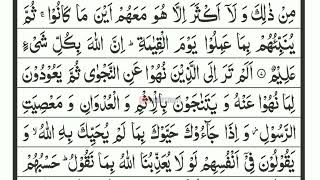 مِنۡ ذٰلِكَ وَلَاۤ اَكۡثَرَ اِلَّا هُوَ مَعَهُمۡ اَيۡنَ مَا كَانُوۡا‌ۚ ثُمَّ
يُنَبِّئُهُمۡ بِمَا عَمِلُوۡا يَوۡمَ الۡقِيٰمَةِ‌ ؕ اِنَّ اللّٰهَ بِكُلِّ شَىۡءٍ
عَلِيۡمٌ ۞ اَلَمۡ تَرَ اِلَى الَّذِيۡنَ نُهُوۡا عَنِ النَّجۡوٰى ثُمَّ يَعُوۡدُوۡنَ
لِمَا نُهُوۡا عَنۡهُ وَيَتَنٰجَوۡنَ بِالۡاِثۡمِ وَالۡعُدۡوَانِ وَمَعۡصِيَتِ
الرَّسُوۡلِ وَاِذَا جَآءُوۡكَ حَيَّوۡكَ بِمَا لَمۡ يُحَيِّكَ بِهِ اللّٰهُ ۙ وَ
يَقُوۡلُوۡنَ فِىۡۤ اَنۡفُسِهِمۡ لَوۡلَا يُعَذِّبُنَا اللّٰهُ بِمَا نَقُوۡلُ‌ؕ حَسۡبُهُمۡ